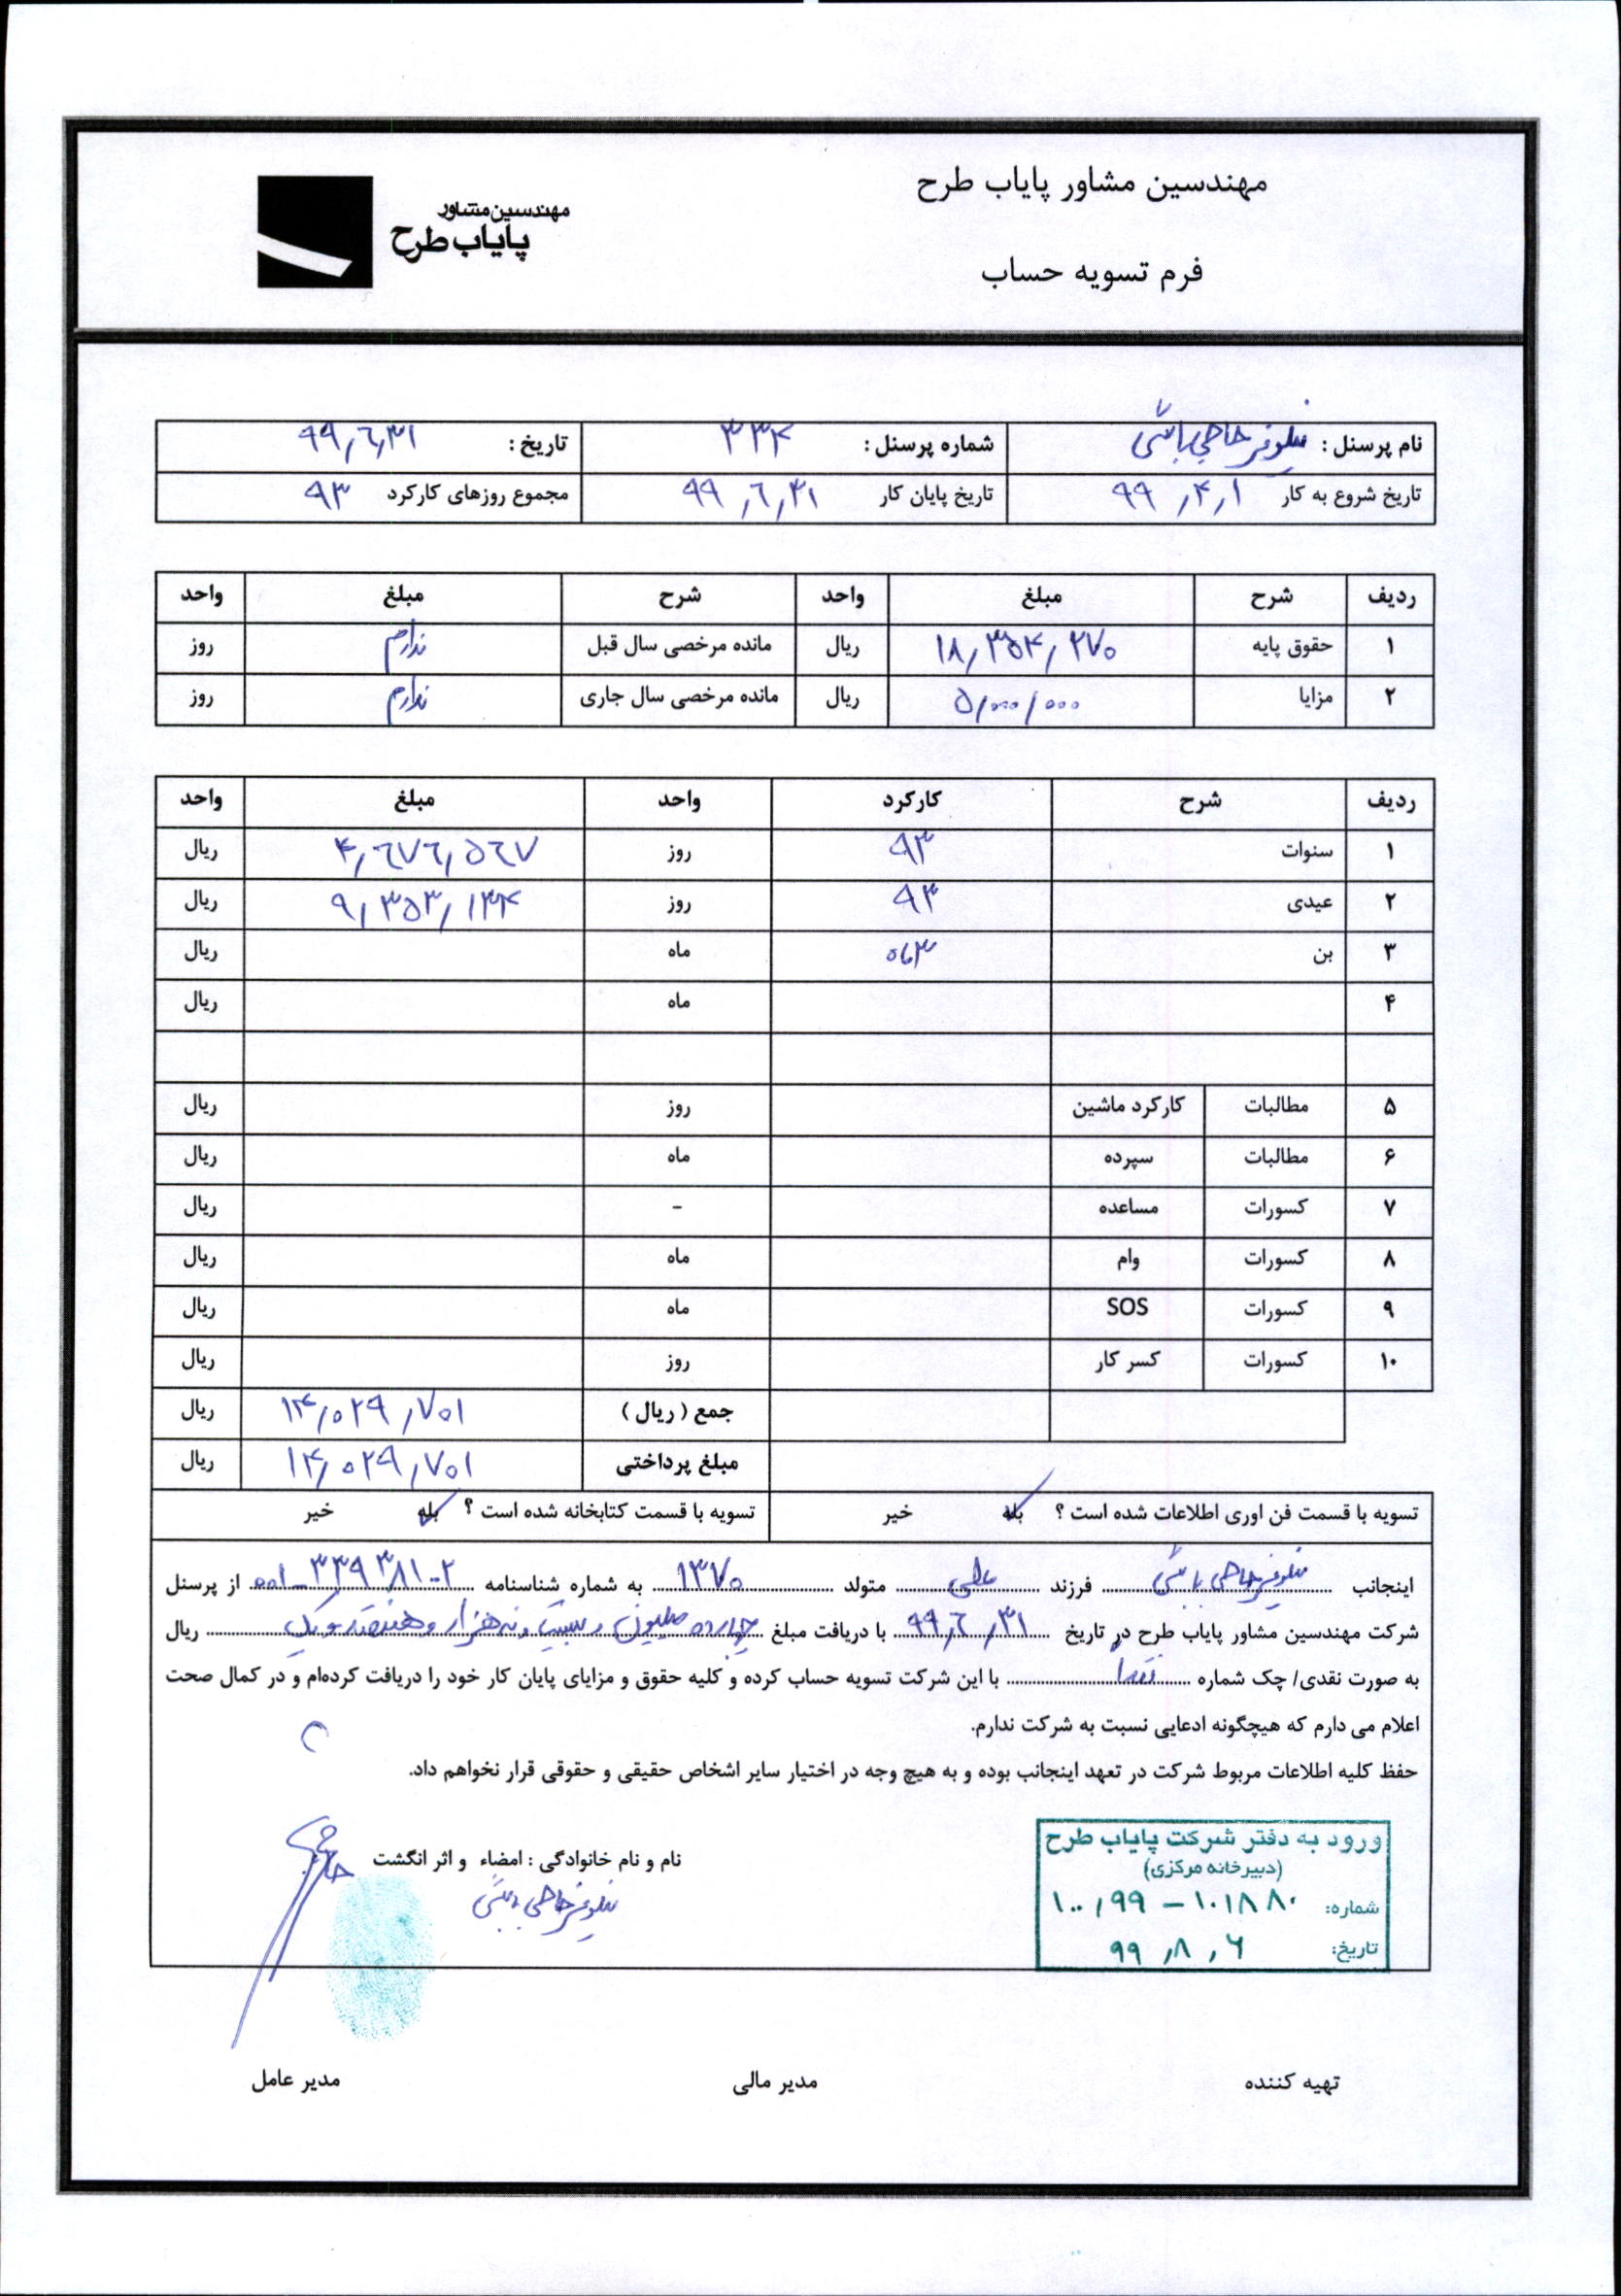 مهندسین مشاور پایاب طرح
مهندسین مشاور
پایاب طرح
فرم تسویه حساب
نام پرسنل : نیلوفر حاجی باشی شماره پرسنل : ۳۳۴ تاریخ : ۹۹,۶,۳۱
تاریخ شروع به کار ۹۹,۴,۱ تاریخ پایان کار ۹۹,۶,۳۱ مجموع روزهای کارکرد ۹۳
ردیف شرح مبلغ واحد شرح مبلغ واحد
۱ حقوق پایه ۱۸,۳۵۴,۲۷۰ ریال مانده مرخصی سال قبل ندارم روز
۲ مزایا ۵/۰۰۰/۰۰۰ ریال مانده مرخصی سال جاری ندارم روز
ردیف شرح کارکرد واحد مبلغ واحد
۱ سنوات ۹۳ روز ۴,۶۷۶,۵۶۷ ریال
۲ عیدی ۹۳ روز ۹,۳۵۳,۱۳۴ ریال
۳ بن ماه ریال
۴ ماه ریال
۵ مطالبات کارکرد ماشین روز ریال
۶ مطالبات سپرده ماه ریال
۷ کسورات مساعده - ریال
۸ کسورات وام ماه ریال
۹ کسورات SOS ماه ریال
۱۰ کسورات کسر کار روز ریال
جمع ( ریال ) ۱۴,۰۲۹,۷۰۱ ریال
مبلغ پرداختی ۱۴,۰۲۹,۷۰۱ ریال
تسویه با قسمت فن اوری اطلاعات شده است ؟ بله خیر تسویه با قسمت کتابخانه شده است ؟ بله خیر
اینجانب نیلوفر حاجی باشی فرزند علی متولد ۱۳۷۰ به شماره شناسنامه از پرسنل
شرکت مهندسین مشاور پایاب طرح در تاریخ ۹۹,۶,۳۱ با دریافت مبلغ چهارده میلیون و بیست و نه هزار و هفتصد و یک ریال
به صورت نقدی/ چک شماره با این شرکت تسویه حساب کرده و کلیه حقوق و مزایای پایان کار خود را دریافت کرده‌ام و در کمال صحت
اعلام می دارم که هیچگونه ادعایی نسبت به شرکت ندارم.
حفظ کلیه اطلاعات مربوط شرکت در تعهد اینجانب بوده و به هیچ وجه در اختیار سایر اشخاص حقیقی و حقوقی قرار نخواهم داد.
ورود به دفتر شرکت پایاب طرح
(دبیرخانه مرکزی)
شماره: ۱۰۰,۹۹ – ۱۰۱۸۸۰
تاریخ: ۹۹,۸,۶
نام و نام خانوادگی : امضاء و اثر انگشت
نیلوفر حاجی باشی
تهیه کننده مدیر مالی مدیر عامل